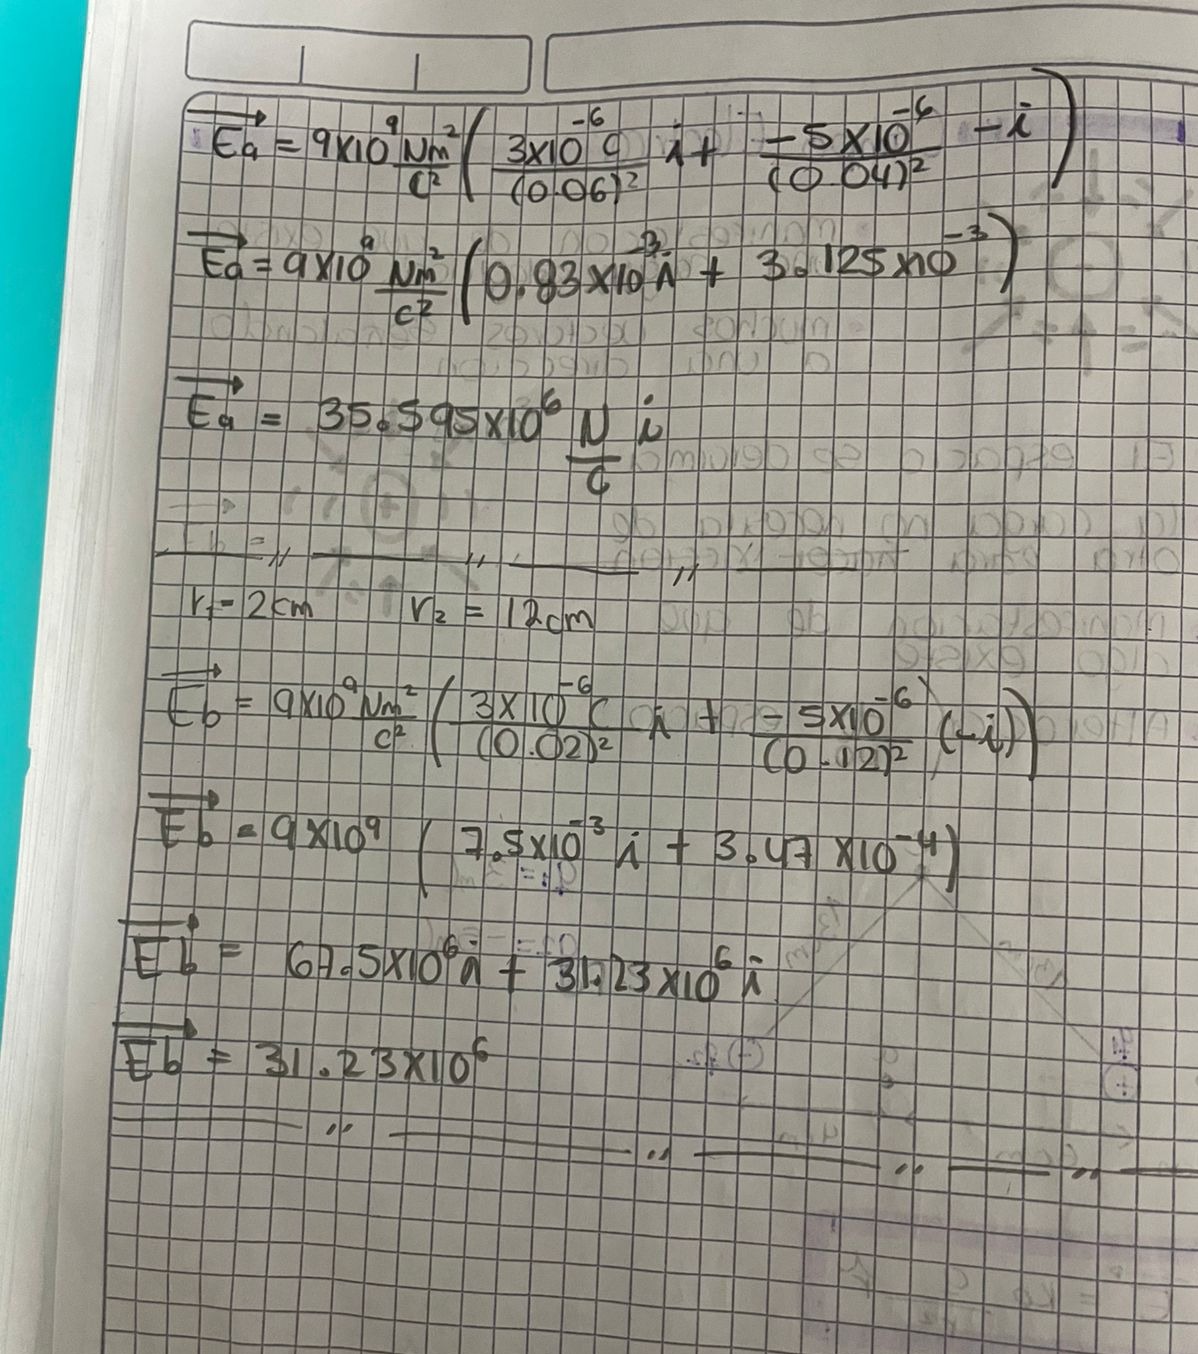 Ea = 9x10⁹ Nm²/C² ( 3x10⁻⁶ C/(0.06)² i + -5x10⁻⁶/(0.04)² -i )
Ea = 9x10⁹ Nm²/C² ( 0.83x10⁻³ i + 3.125x10⁻³ )
Ea = 35.595x10⁶ N/C i
r₁ = 2cm r₂ = 12cm
Eb = 9x10⁹ Nm²/C² ( 3x10⁻⁶ C/(0.02)² i + -5x10⁻⁶/(0.12)² (-i) )
Eb = 9x10⁹ ( 7.5x10⁻³ i + 3.47x10⁻⁴ )
Eb = 67.5x10⁶ i + 31.23x10⁶ i
Eb = 31.23x10⁶